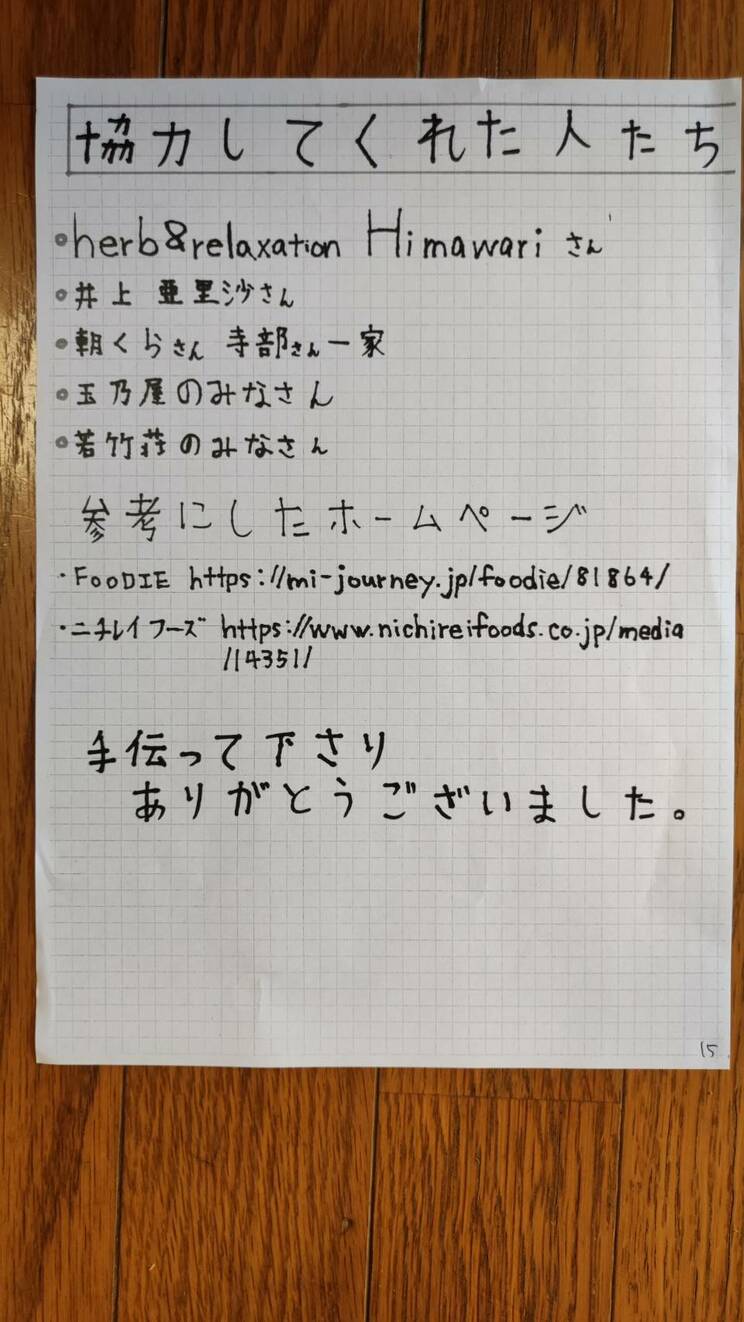 協力してくれた人たち
herb&relaxation Himawari さん
井上 亜里沙さん
朝くらさん 寺部さん一家
玉乃屋のみなさん
若竹荘のみなさん
参考にしたホームページ
・FOODIE https://mi-journey.jp/foodie/81864/
・ニチレイフーズ https://www.nichireifoods.co.jp/media
/14351/
手伝って下さり
ありがとうございました。
15